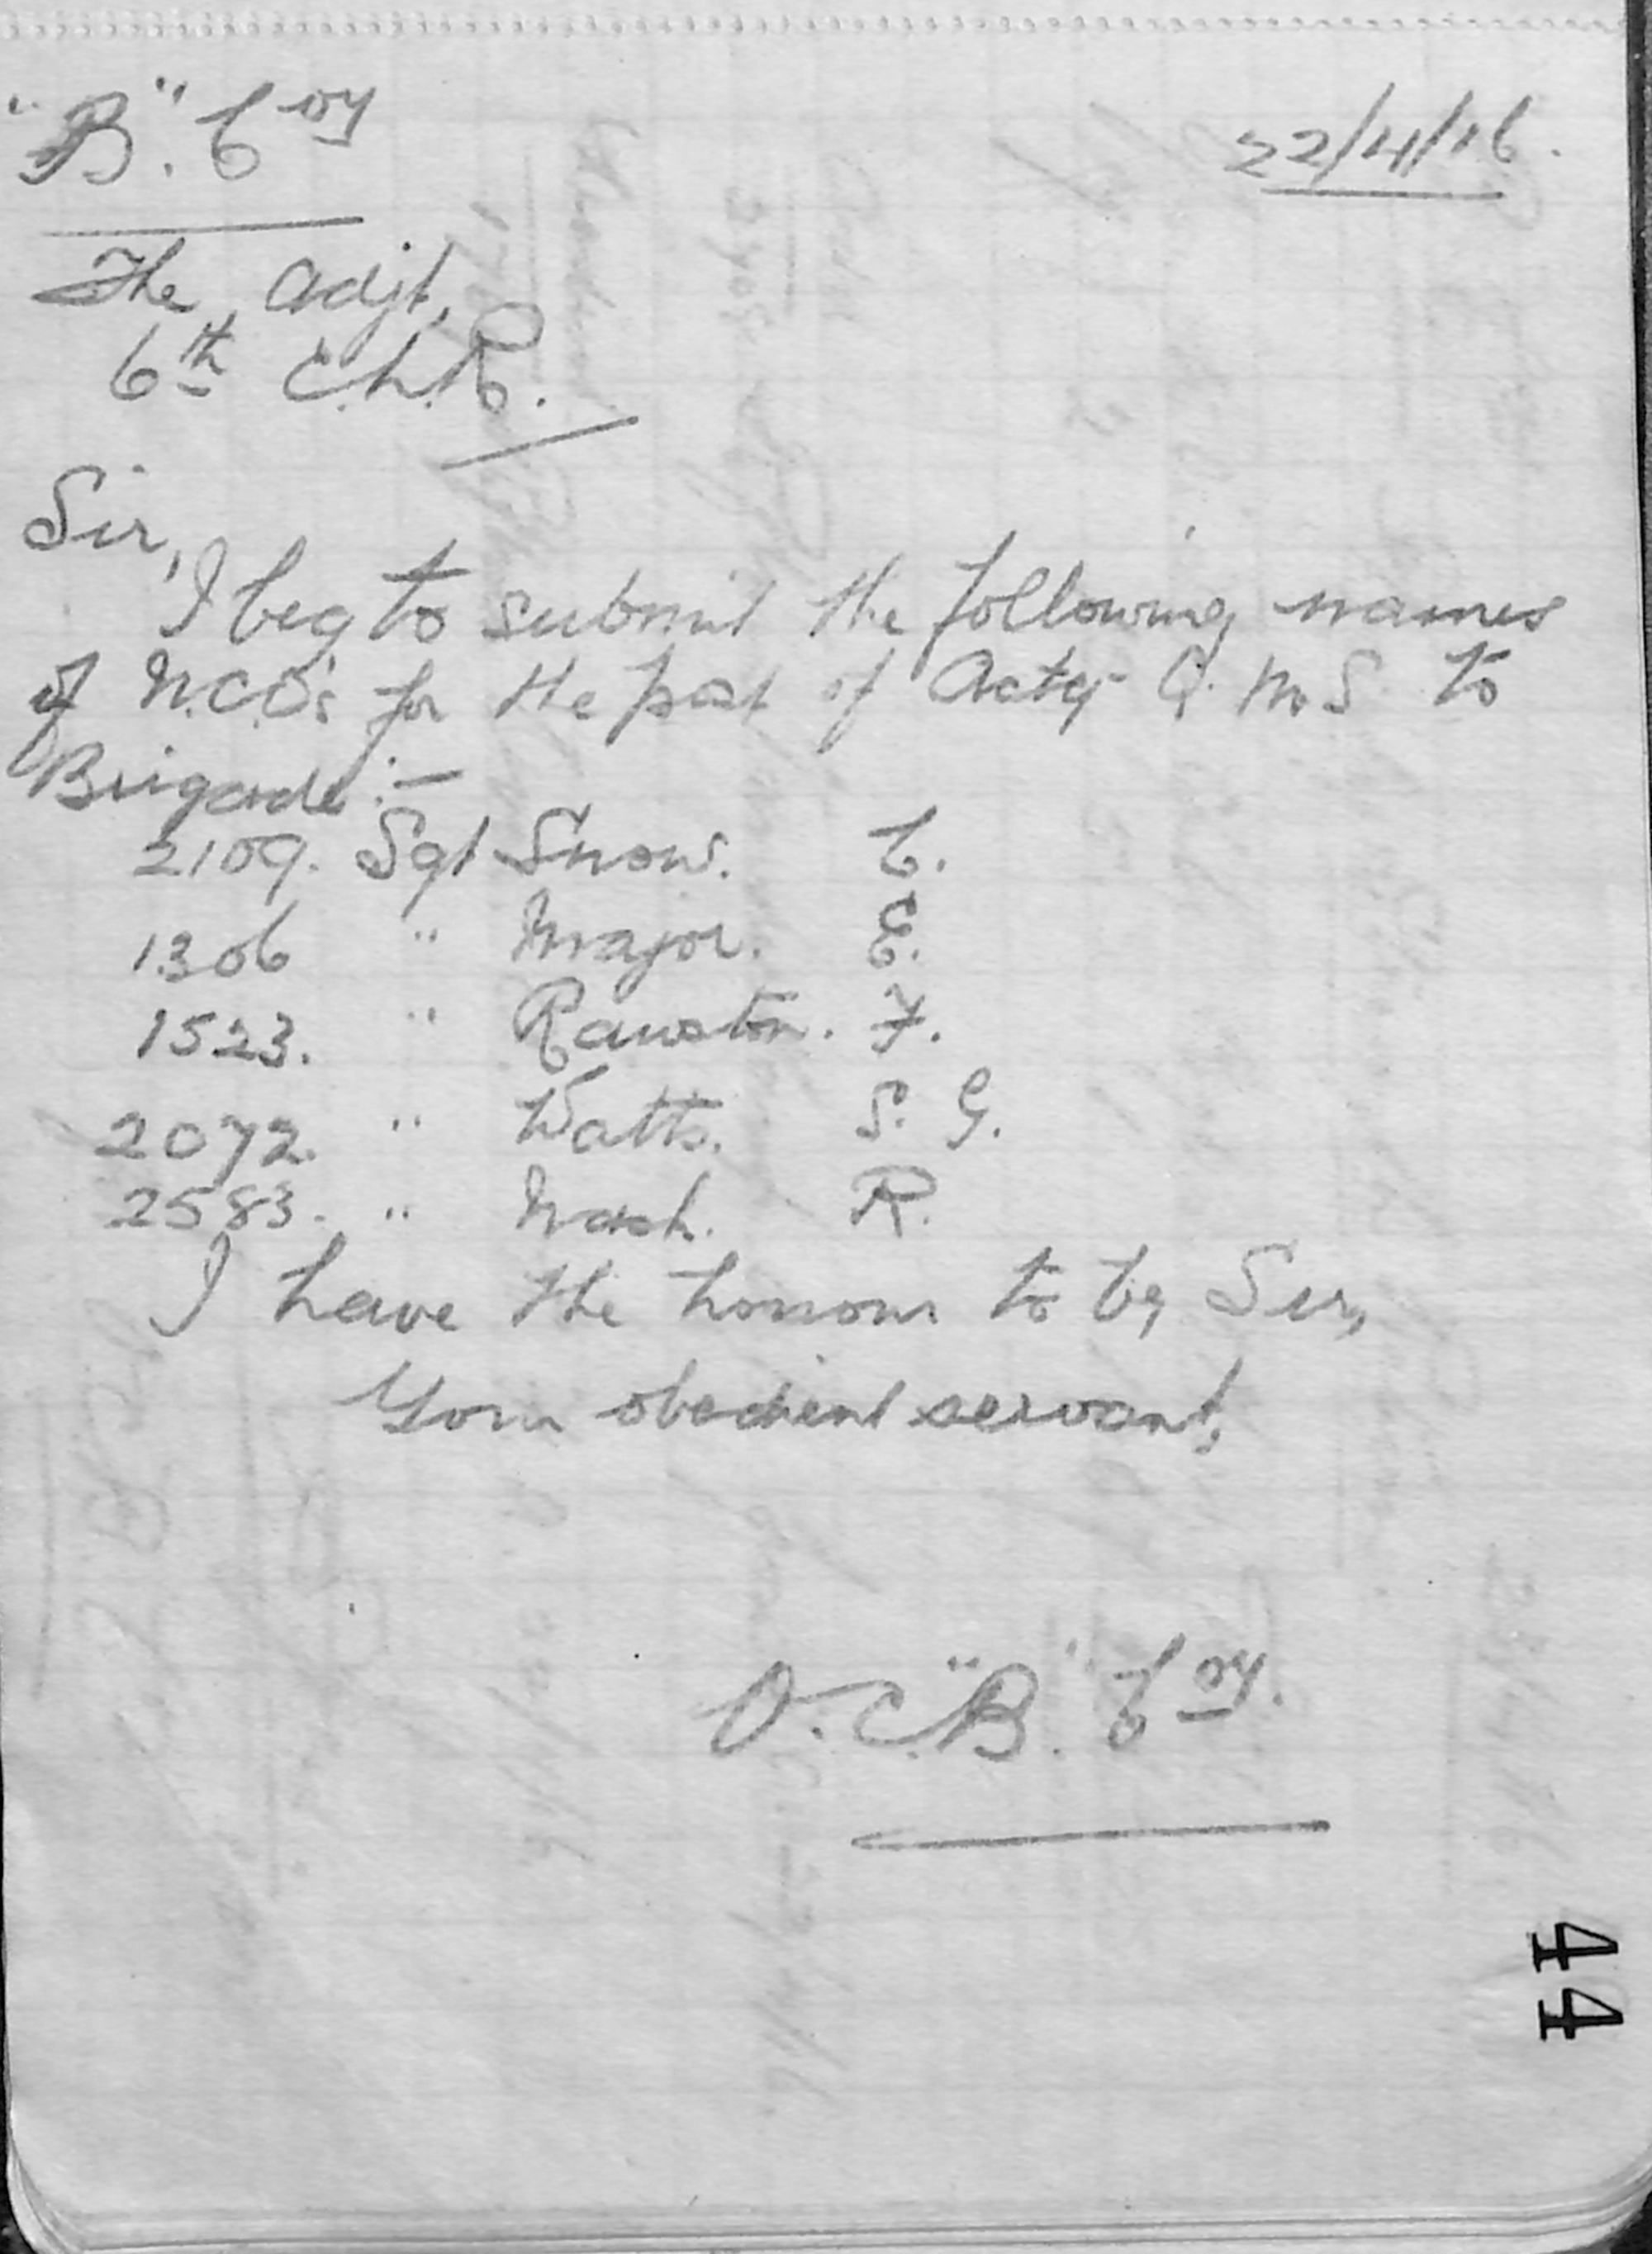 "B". Coy
22/4/16.
The Adjt,
6th C.L.R.
Sir,
I beg to submit the following names
of N.C.O's for the post of Actg Q.M.S to
Brigade :-
2109. Sgt Snow. C.
1306 " Major. E.
1523. " Rawston. F.
2072. " Watts. S. G.
2583. " Nash. R.
I have the honour to be, Sir,
Your obedient servant,
O.C. "B". Coy.
44